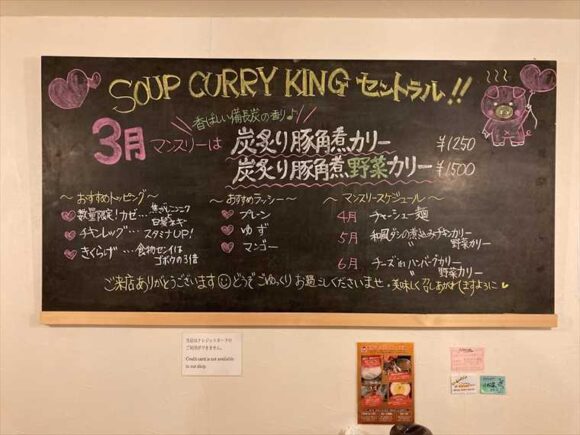 SOUP CURRY KING セントラル!!
香ばしい備長炭の香り♪
3月 マンスリーは 炭炙り豚角煮カリー ¥1250
炭炙り豚角煮野菜カリー ¥1500
〜おすすめトッピング〜
数量限定!カゼ…焦がしニンニク
チキンレッグ…スタミナUP!
きくらげ…食物センイは
ゴボウの3倍
〜おすすめラッシー〜
プレーン
ゆず
マンゴー
〜マンスリースケジュール〜
4月 チャーシュー麺
5月 和風ダシの煮込みチキンカリー
〃 野菜カリー
6月 チーズinハンバーグカリー
〃 野菜カリー
ご来店ありがとうございます どうぞごゆっくりお過ごしくださいませ・美味しく召しあがれますように
当店はクレジットカードの
ご利用ができません。
Credit card is not available
in our shop.